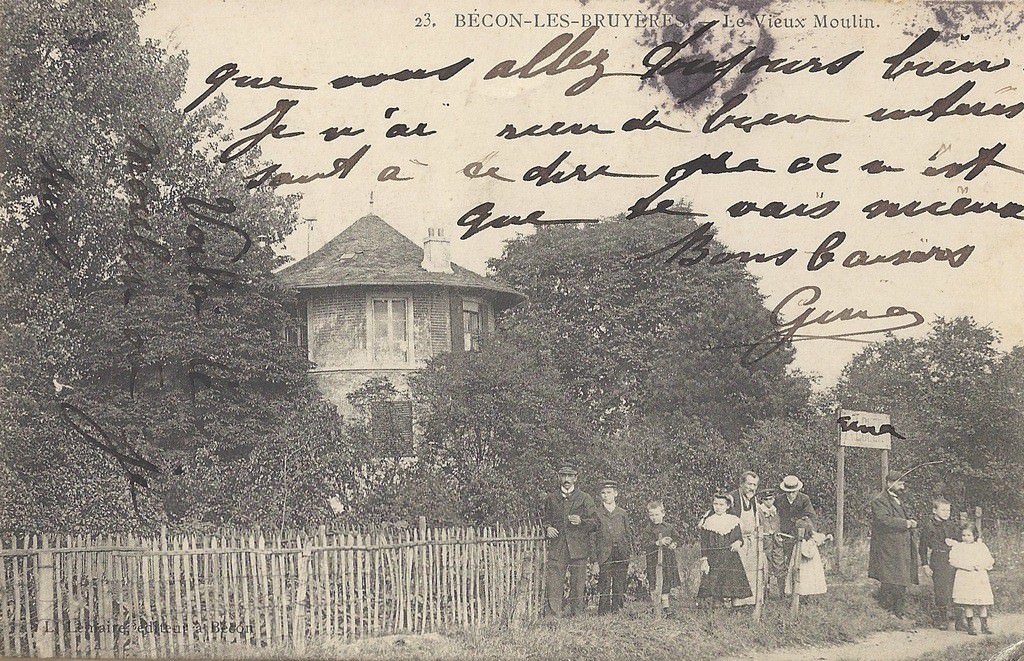 23. BÉCON-LES-BRUYÈRES. — Le Vieux Moulin.
que vous allez toujours bien
Je n'ai rien de bien intéres
sant à te dire ce n'est
que je vais mieux
Bons baisers
Gina
L. Lemaire, éditeur à Bécon